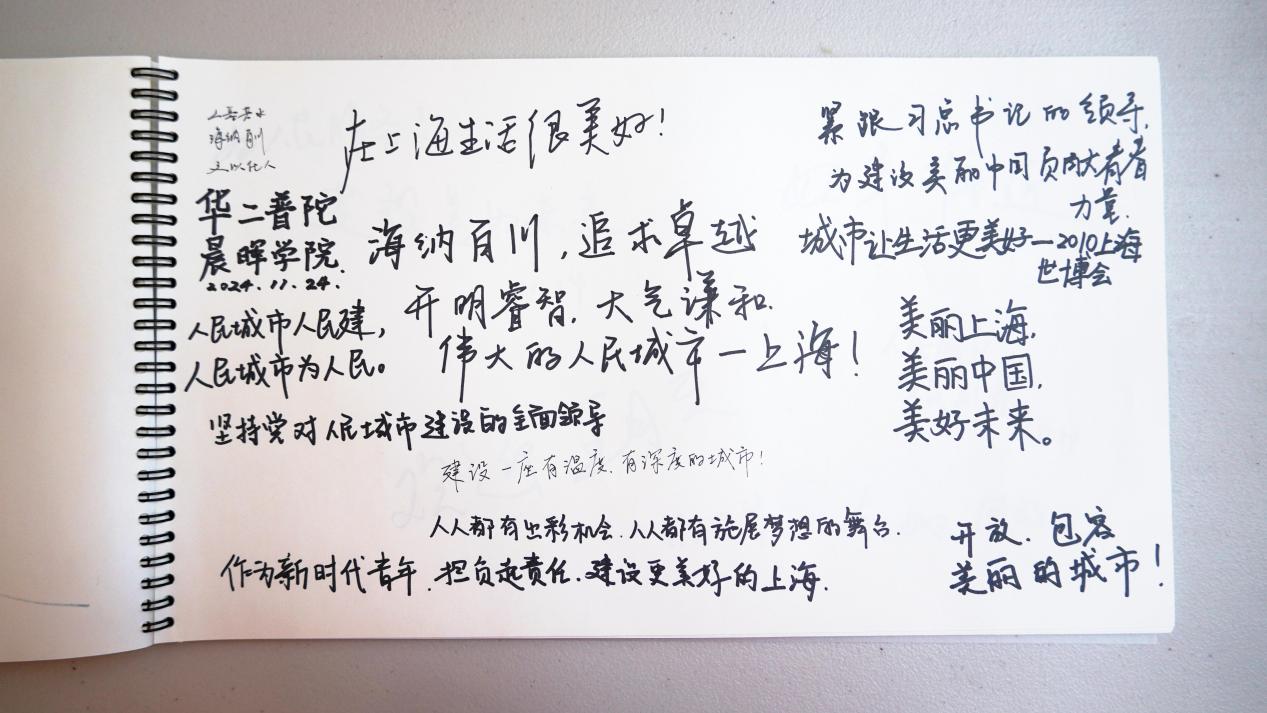 在上海生活很美好！
华二普陀
晨晖学院.
2024.11.24.
海纳百川，追求卓越
开明睿智. 大气谦和.
伟大的人民城市—上海！
人民城市人民建，
人民城市为人民。
坚持党对人民城市建设的全面领导
建设一座有温度、有深度的城市！
人人都有出彩机会. 人人都有施展梦想的舞台.
作为新时代青年. 担负起责任. 建设更美好的上海.
紧跟习总书记的领导，
为建设美丽中国贡献青春
力量.
城市让生活更美好—2010上海
世博会
美丽上海,
美丽中国,
美好未来。
开放. 包容
美丽的城市！